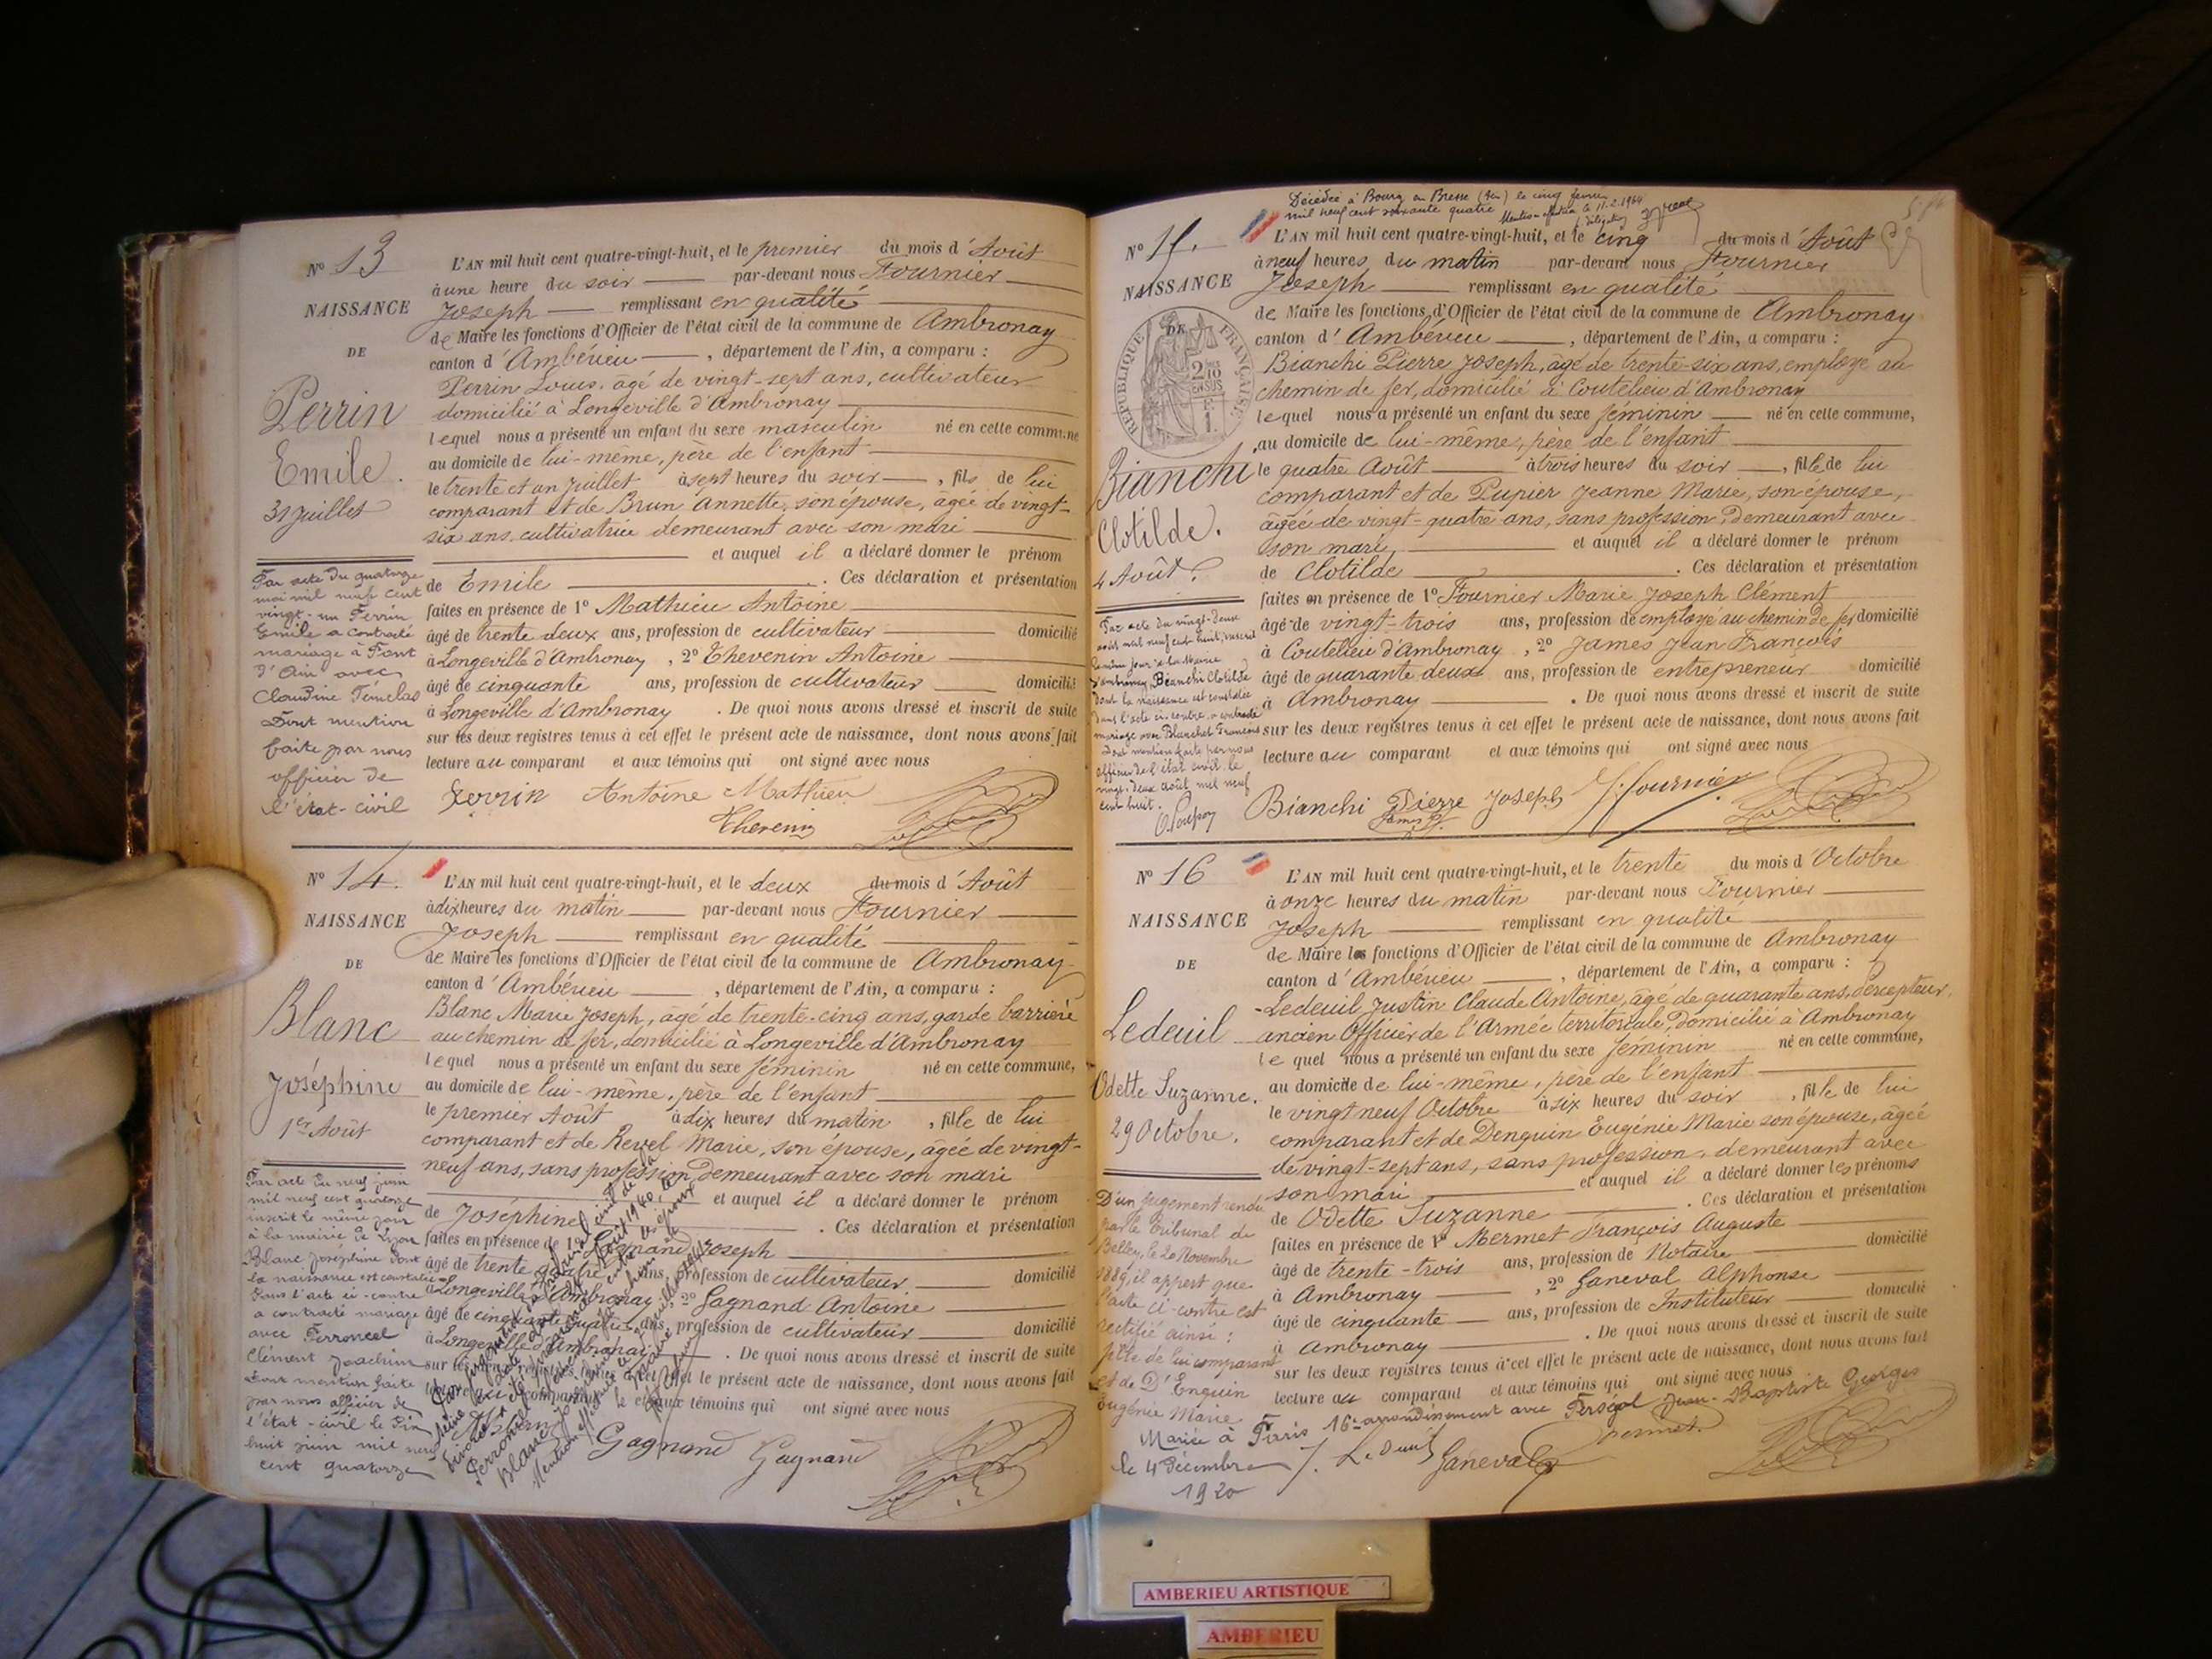 Nº 13
NAISSANCE
DE
Perrin
Emile.
31 Juillet
Par acte du quatorze
mai mil neuf cent
vingt-un Perrin
Emile a contracté
mariage à Pont
d'Ain avec
Claudine
Dont mention
faite par nous
officier de
l'état-civil
L'AN mil huit cent quatre-vingt-huit, et le premier du mois d'Août
à une heure du soir par-devant nous Fournier
Joseph remplissant en qualité
de Maire les fonctions d'Officier de l'état civil de la commune de Ambronay
canton d'Ambérieu, département de l'Ain, a comparu :
Perrin Louis, âgé de vingt-sept ans, cultivateur
domicilié à Longeville d'Ambronay
lequel nous a présenté un enfant du sexe masculin né en cette commune
au domicile de lui-même, père de l'enfant
le trente et un Juillet à sept heures du soir, fils de lui
comparant et de Brun Annette, son épouse, âgée de vingt-
six ans, cultivatrice demeurant avec son mari
et auquel il a déclaré donner le prénom
de Emile. Ces déclaration et présentation
faites en présence de 1º Mathieu Antoine
âgé de trente deux ans, profession de cultivateur domicilié
à Longeville d'Ambronay, 2º Thevenin Antoine
âgé de cinquante ans, profession de cultivateur domicilié
à Longeville d'Ambronay. De quoi nous avons dressé et inscrit de suite
sur les deux registres tenus à cet effet le présent acte de naissance, dont nous avons fait
lecture au comparant et aux témoins qui ont signé avec nous
Perrin Antoine Mathieu
Thevenin
Nº 14.
NAISSANCE
DE
Blanc
Joséphine
1er Août
Par acte du neuf juin
mil neuf cent quatorze
inscrit le même jour
à la mairie de Lyon
Blanc Joséphine dont
la naissance est constatée
dans l'acte ci-contre
a contracté mariage
avec Perroncel
Clément Joachim
Dont mention faite
par nous officier de
l'état-civil le dix
huit juin mil neuf
cent quatorze
L'AN mil huit cent quatre-vingt-huit, et le deux du mois d'Août
à dix heures du matin par-devant nous Fournier
Joseph remplissant en qualité
de Maire les fonctions d'Officier de l'état civil de la commune de Ambronay
canton d'Ambérieu, département de l'Ain, a comparu :
Blanc Marie Joseph, âgé de trente-cinq ans, garde barrière
au chemin de fer, domicilié à Longeville d'Ambronay
lequel nous a présenté un enfant du sexe féminin né en cette commune,
au domicile de lui-même, père de l'enfant
le premier Août à dix heures du matin, fille de lui
comparant et de Revel Marie, son épouse, âgée de vingt-
neuf ans, sans profession, demeurant avec son mari
et auquel il a déclaré donner le prénom
de Joséphine. Ces déclaration et présentation
faites en présence de 1º Gagnand Joseph
âgé de trente quatre ans, profession de cultivateur domicilié
à Longeville d'Ambronay, 2º Gagnand Antoine
âgé de cinquante quatre ans, profession de cultivateur domicilié
à Longeville d'Ambronay. De quoi nous avons dressé et inscrit de suite
sur les deux registres tenus à cet effet le présent acte de naissance, dont nous avons fait
lecture au comparant et aux témoins qui ont signé avec nous
Gagnand Gagnand
Décédée à Bourg en Bresse (Ain) le cinq février
mil neuf cent soixante quatre Mention effectuée le 11.2.1964
Nº 15.
NAISSANCE
DE
RÉPUBLIQUE FRANÇAISE
2/10 EN SUS
Bianchi
Clotilde.
4 Août.
Par acte du vingt-deux
août mil neuf cent huit, inscrit
le même jour à la Mairie
d'Ambronay, Bianchi Clotilde
dont la naissance est constatée
dans l'acte ci-contre, a contracté
mariage avec Blanchet François
dont mention faite par nous
officier de l'état civil le
vingt-deux août mil neuf
cent huit.
L'AN mil huit cent quatre-vingt-huit, et le cinq du mois d'Août
à neuf heures du matin par-devant nous Fournier
Joseph remplissant en qualité
de Maire les fonctions d'Officier de l'état civil de la commune de Ambronay
canton d'Ambérieu, département de l'Ain, a comparu :
Bianchi Pierre Joseph, âgé de trente-six ans, employé au
chemin de fer, domicilié à Coutelieu d'Ambronay
lequel nous a présenté un enfant du sexe féminin né en cette commune,
au domicile de lui-même, père de l'enfant
le quatre Août à trois heures du soir, fille de lui
comparant et de Pupier Jeanne Marie, son épouse,
âgée de vingt-quatre ans, sans profession, demeurant avec
son mari, et auquel il a déclaré donner le prénom
de Clotilde. Ces déclaration et présentation
faites en présence de 1º Fournier Marie Joseph Clément
âgé de vingt-trois ans, profession de employé au chemin de fer domicilié
à Coutelieu d'Ambronay, 2º James Jean François
âgé de quarante deux ans, profession de entrepreneur domicilié
à Ambronay. De quoi nous avons dressé et inscrit de suite
sur les deux registres tenus à cet effet le présent acte de naissance, dont nous avons fait
lecture au comparant et aux témoins qui ont signé avec nous
Bianchi Pierre Joseph J. Fournier
James
Nº 16
NAISSANCE
DE
Ledeuil
Odette Suzanne.
29 Octobre.
D'un jugement rendu
par le tribunal de
Belley, le 20 Novembre
1889, il appert que
l'acte ci-contre est
rectifié ainsi :
fille de lui comparant
et de D'Enguin
Eugénie Marie
L'AN mil huit cent quatre-vingt-huit, et le trente du mois d'Octobre
à onze heures du matin par-devant nous Fournier
Joseph remplissant en qualité
de Maire les fonctions d'Officier de l'état civil de la commune de Ambronay
canton d'Ambérieu, département de l'Ain, a comparu :
Ledeuil Justin Claude Antoine, âgé de quarante ans, percepteur,
ancien Officier de l'Armée territoriale, domicilié à Ambronay
lequel nous a présenté un enfant du sexe féminin né en cette commune,
au domicile de lui-même, père de l'enfant
le vingt neuf Octobre à six heures du soir, fille de lui
comparant et de Denguin Eugénie Marie son épouse, âgée
de vingt-sept ans, sans profession, demeurant avec
son mari et auquel il a déclaré donner les prénoms
de Odette Suzanne. Ces déclaration et présentation
faites en présence de 1º Mermet François Auguste
âgé de trente-trois ans, profession de Notaire domicilié
à Ambronay, 2º Ganeval Alphonse
âgé de cinquante ans, profession de Instituteur domicilié
à Ambronay. De quoi nous avons dressé et inscrit de suite
sur les deux registres tenus à cet effet le présent acte de naissance, dont nous avons fait
lecture au comparant et aux témoins qui ont signé avec nous
Mariée à Paris 16e arrondissement avec Perségol Jean-Baptiste Georges
le 4 Décembre
1920
J. Ledeuil Ganeval Mermet
AMBERIEU ARTISTIQUE
AMBERIEU